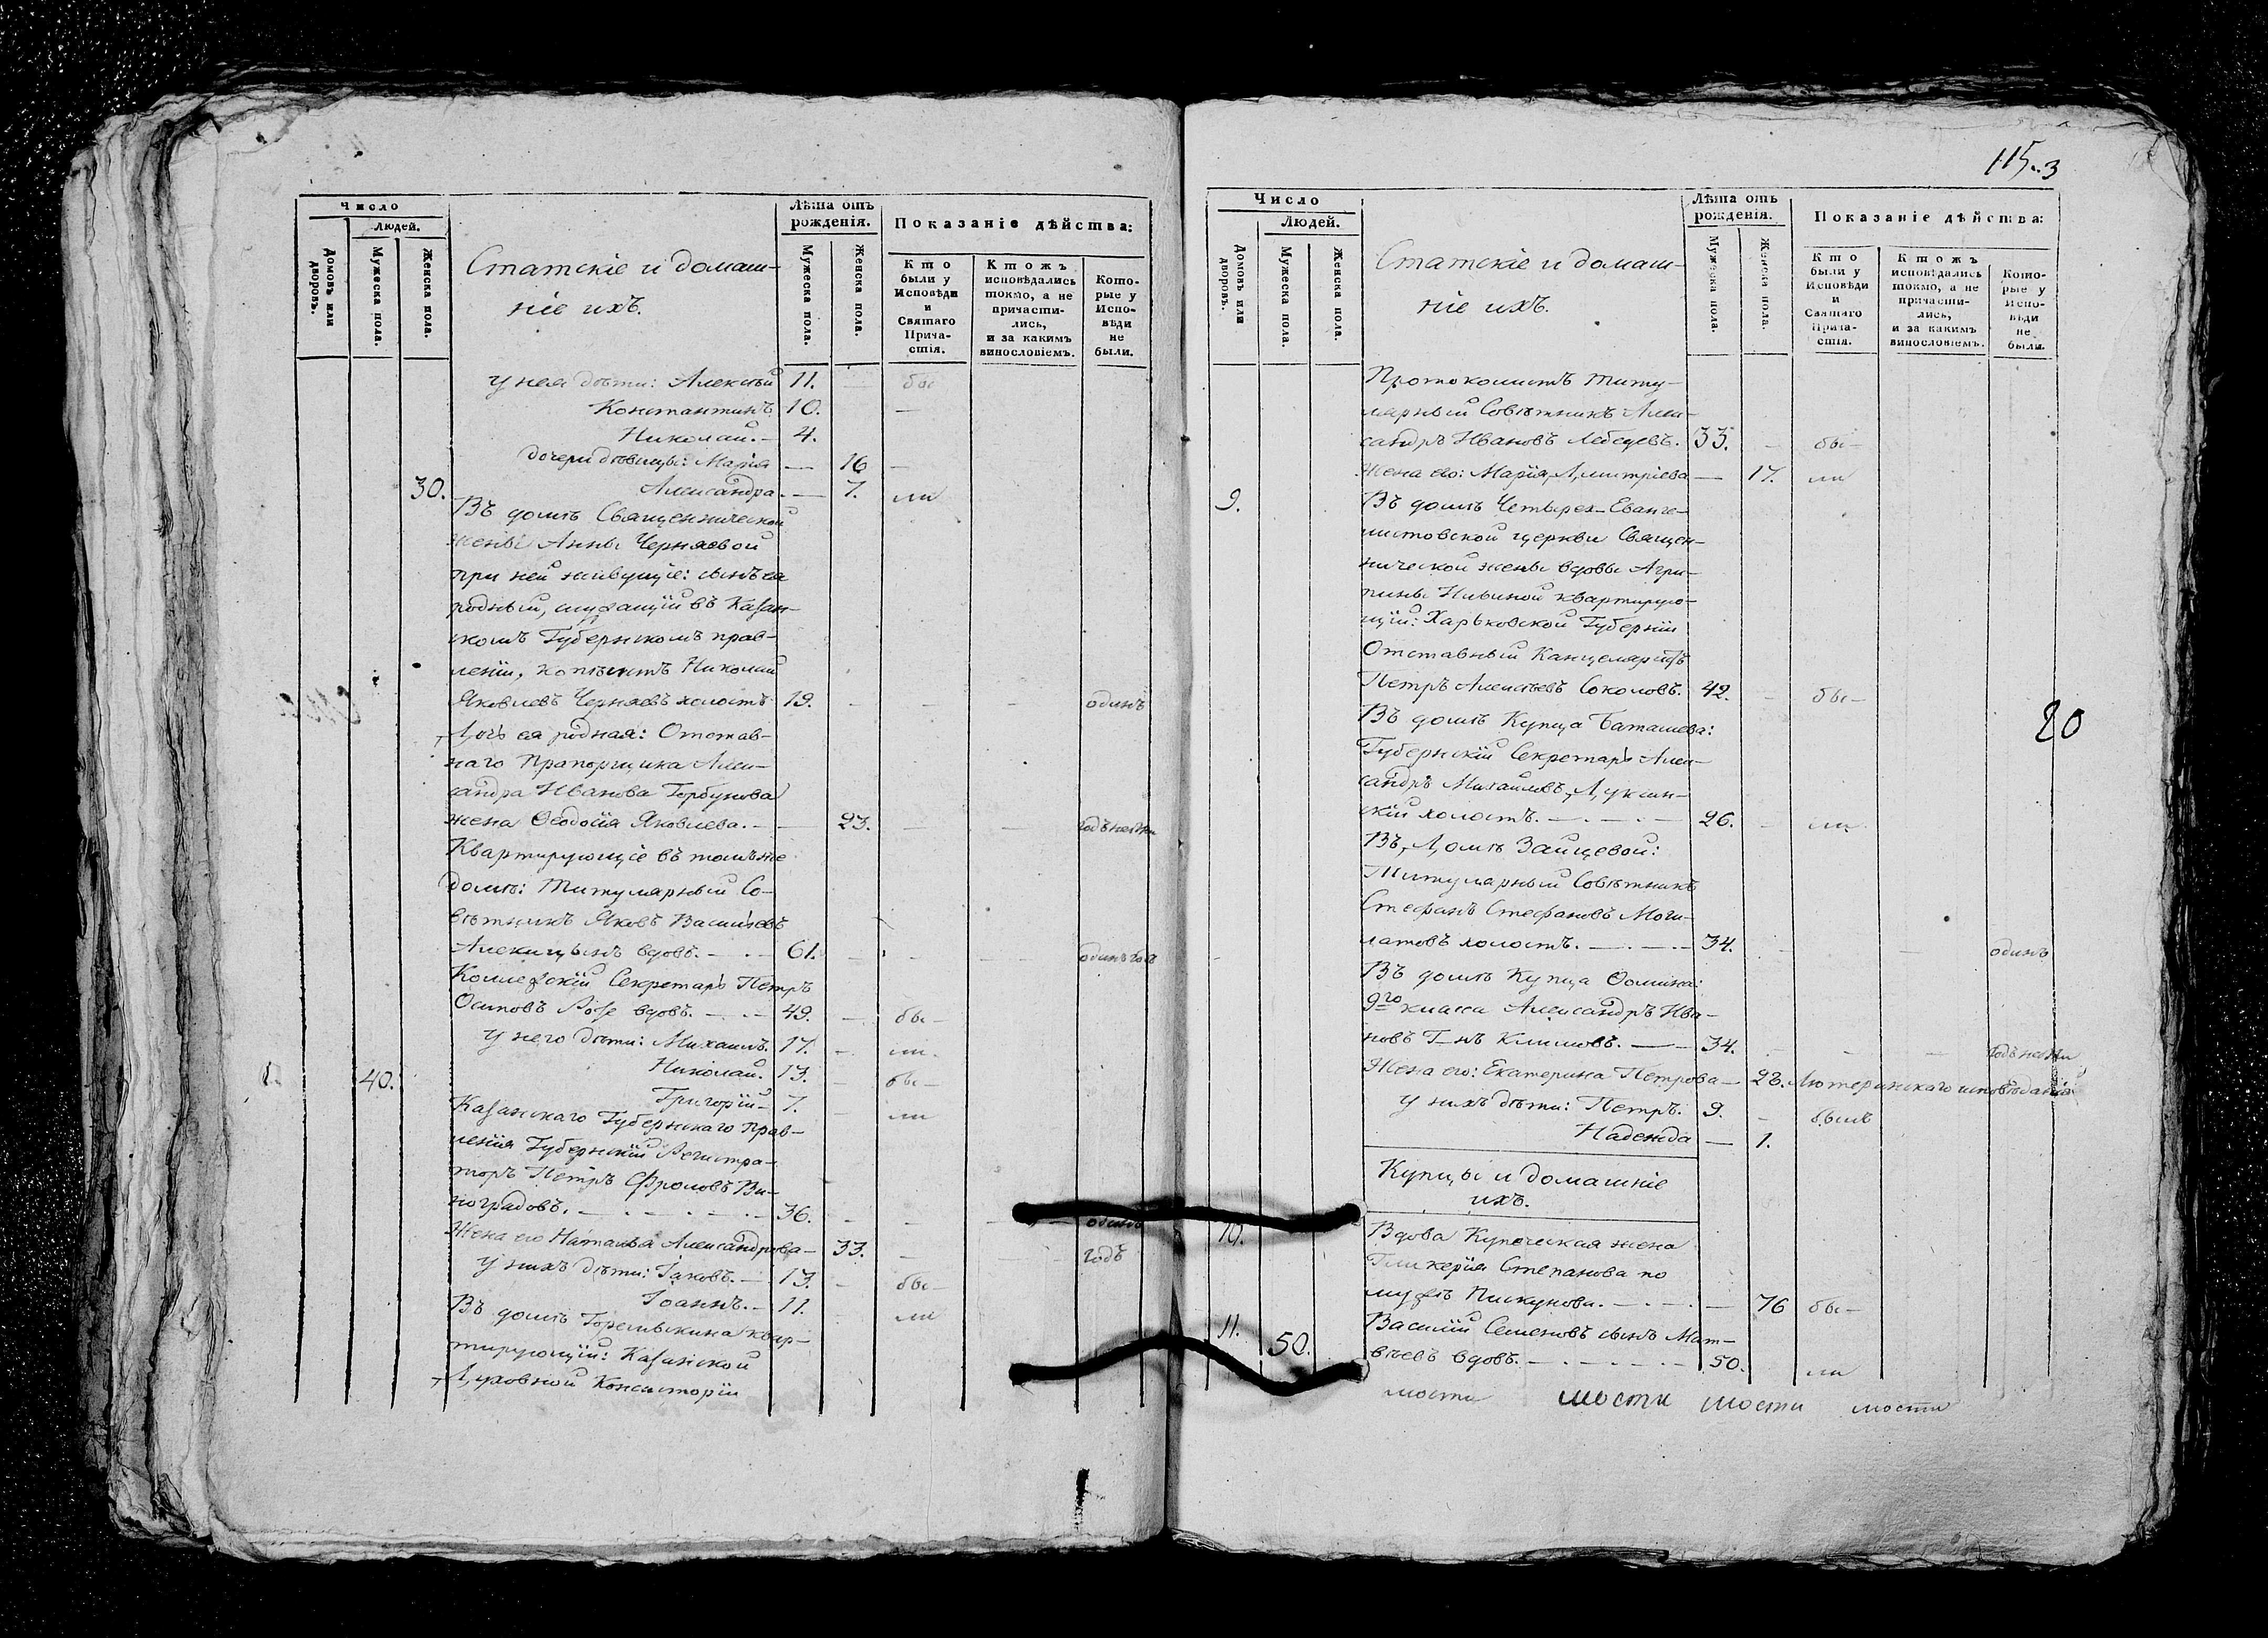 Число
Людей.
Домовъ или дворовъ.
Мужеска пола.
Женска пола.
Статскіе и домаш-
ніе ихъ.
Лѣта отъ рожденія.
Мужеска пола.
Женска пола.
Показаніе дѣйства:
Кто были у Исповѣди и Святаго Прича-стія.
Ктожъ исповѣдались токмо, а не причасти-лись, и за какимъ винословіемъ.
Кото-рые у Испо-вѣди не были.
у нея дѣти: Алексѣй 11. — бы
Константинъ 10. —
Николай. — 4.
дочери дѣвицы: Марія — 16 —
30. Александра. — 7. ли
Въ домѣ Священнической
жены Анны Черняевой
при ней живущіе: сынъ ея
родный, служащій въ Казан-
скомъ Губернскомъ прав-
леніи, копіистъ Николай
Яковлевъ Черняевъ холостъ 19. — — — одинъ
Дочь ея родная: Отстав-
наго Прапорщика Алек-
сандра Иванова Горбунова
жена Ѳеодосія Яковлева. — — 23. — —
Квартирующіе въ томъ же
домѣ: Титулярный Со-
вѣтникъ Яковъ Васильевъ
вдовъ. — 61. — — — одинъ годъ
Коллежскій Секретарь Петръ
Осиповъ вдовъ. — 49. — бы —
у него дѣти: Михаилъ. 17. — ли.
40. Николай. 13. — бы —
Григорій — 7. — ли
Казанскаго Губернскаго Прав-
ленія Губернскій Регистра-
торъ Петръ Фроловъ Ви-
ноградовъ. — 36. — — — одинъ
Жена его Наталья Александрова — 33. — — годъ
у нихъ дѣти: Іаковъ. — 13. — бы —
Іоаннъ. — 11. ли
Въ домѣ Горемыкина квар-
тирующій: Казанской
Духовной Консисторіи
115. 3
Число
Людей.
Домовъ или дворовъ.
Мужеска пола.
Женска пола.
Статскіе и домаш-
ніе ихъ.
Лѣта отъ рожденія.
Мужеска пола.
Женска пола.
Показаніе дѣйства:
Кто были у Исповѣди и Святаго Прича-стія.
Ктожъ исповѣдались токмо, а не причасти-лись, и за какимъ винословіемъ.
Кото-рые у Испо-вѣди не были.
Протоколистъ титу-
лярный Совѣтникъ Алек-
сандръ Ивановъ Лебедевъ. 33. — бы —
Жена его: Марія Дмитріева — 17. ли
9. Въ домѣ Четырех-Еванге-
листовской церкви Священ-
нической жены вдовы Агри-
пины Ильиной квартирую-
щій: Харьковской Губерніи
Отставный Канцеляристъ
Петръ Алексѣевъ Соколовъ. 42. — бы —
20
Въ домѣ Купца Баташева:
Губернскій Секретарь Алек-
сандръ Михайловъ Дукшин-
скій холостъ. — 26. — лъ
Въ Домѣ Зайцевой:
Титулярный Совѣтникъ
Стефанъ Стефановъ Моги-
латовъ холостъ. — 34. — — одинъ
Въ домѣ Купца Ѳомина:
9го класса Александръ Ива-
новъ Г—нъ Климовъ. — 34. — — —
Жена его: Екатерина Петрова — 28. Лютеранскаго исповѣданія
у нихъ дѣти: Петръ. 9. — былъ
Надежда — 1.
Купцы и домашніе
ихъ.
10. Вдова Купеческая жена
Гликерія Степанова по
мужѣ Пискунова. — 76 бы —
11. Василій Семеновъ сынъ Мат-
50. вѣевъ вдовъ. — 50. ли
мости мости мости мости